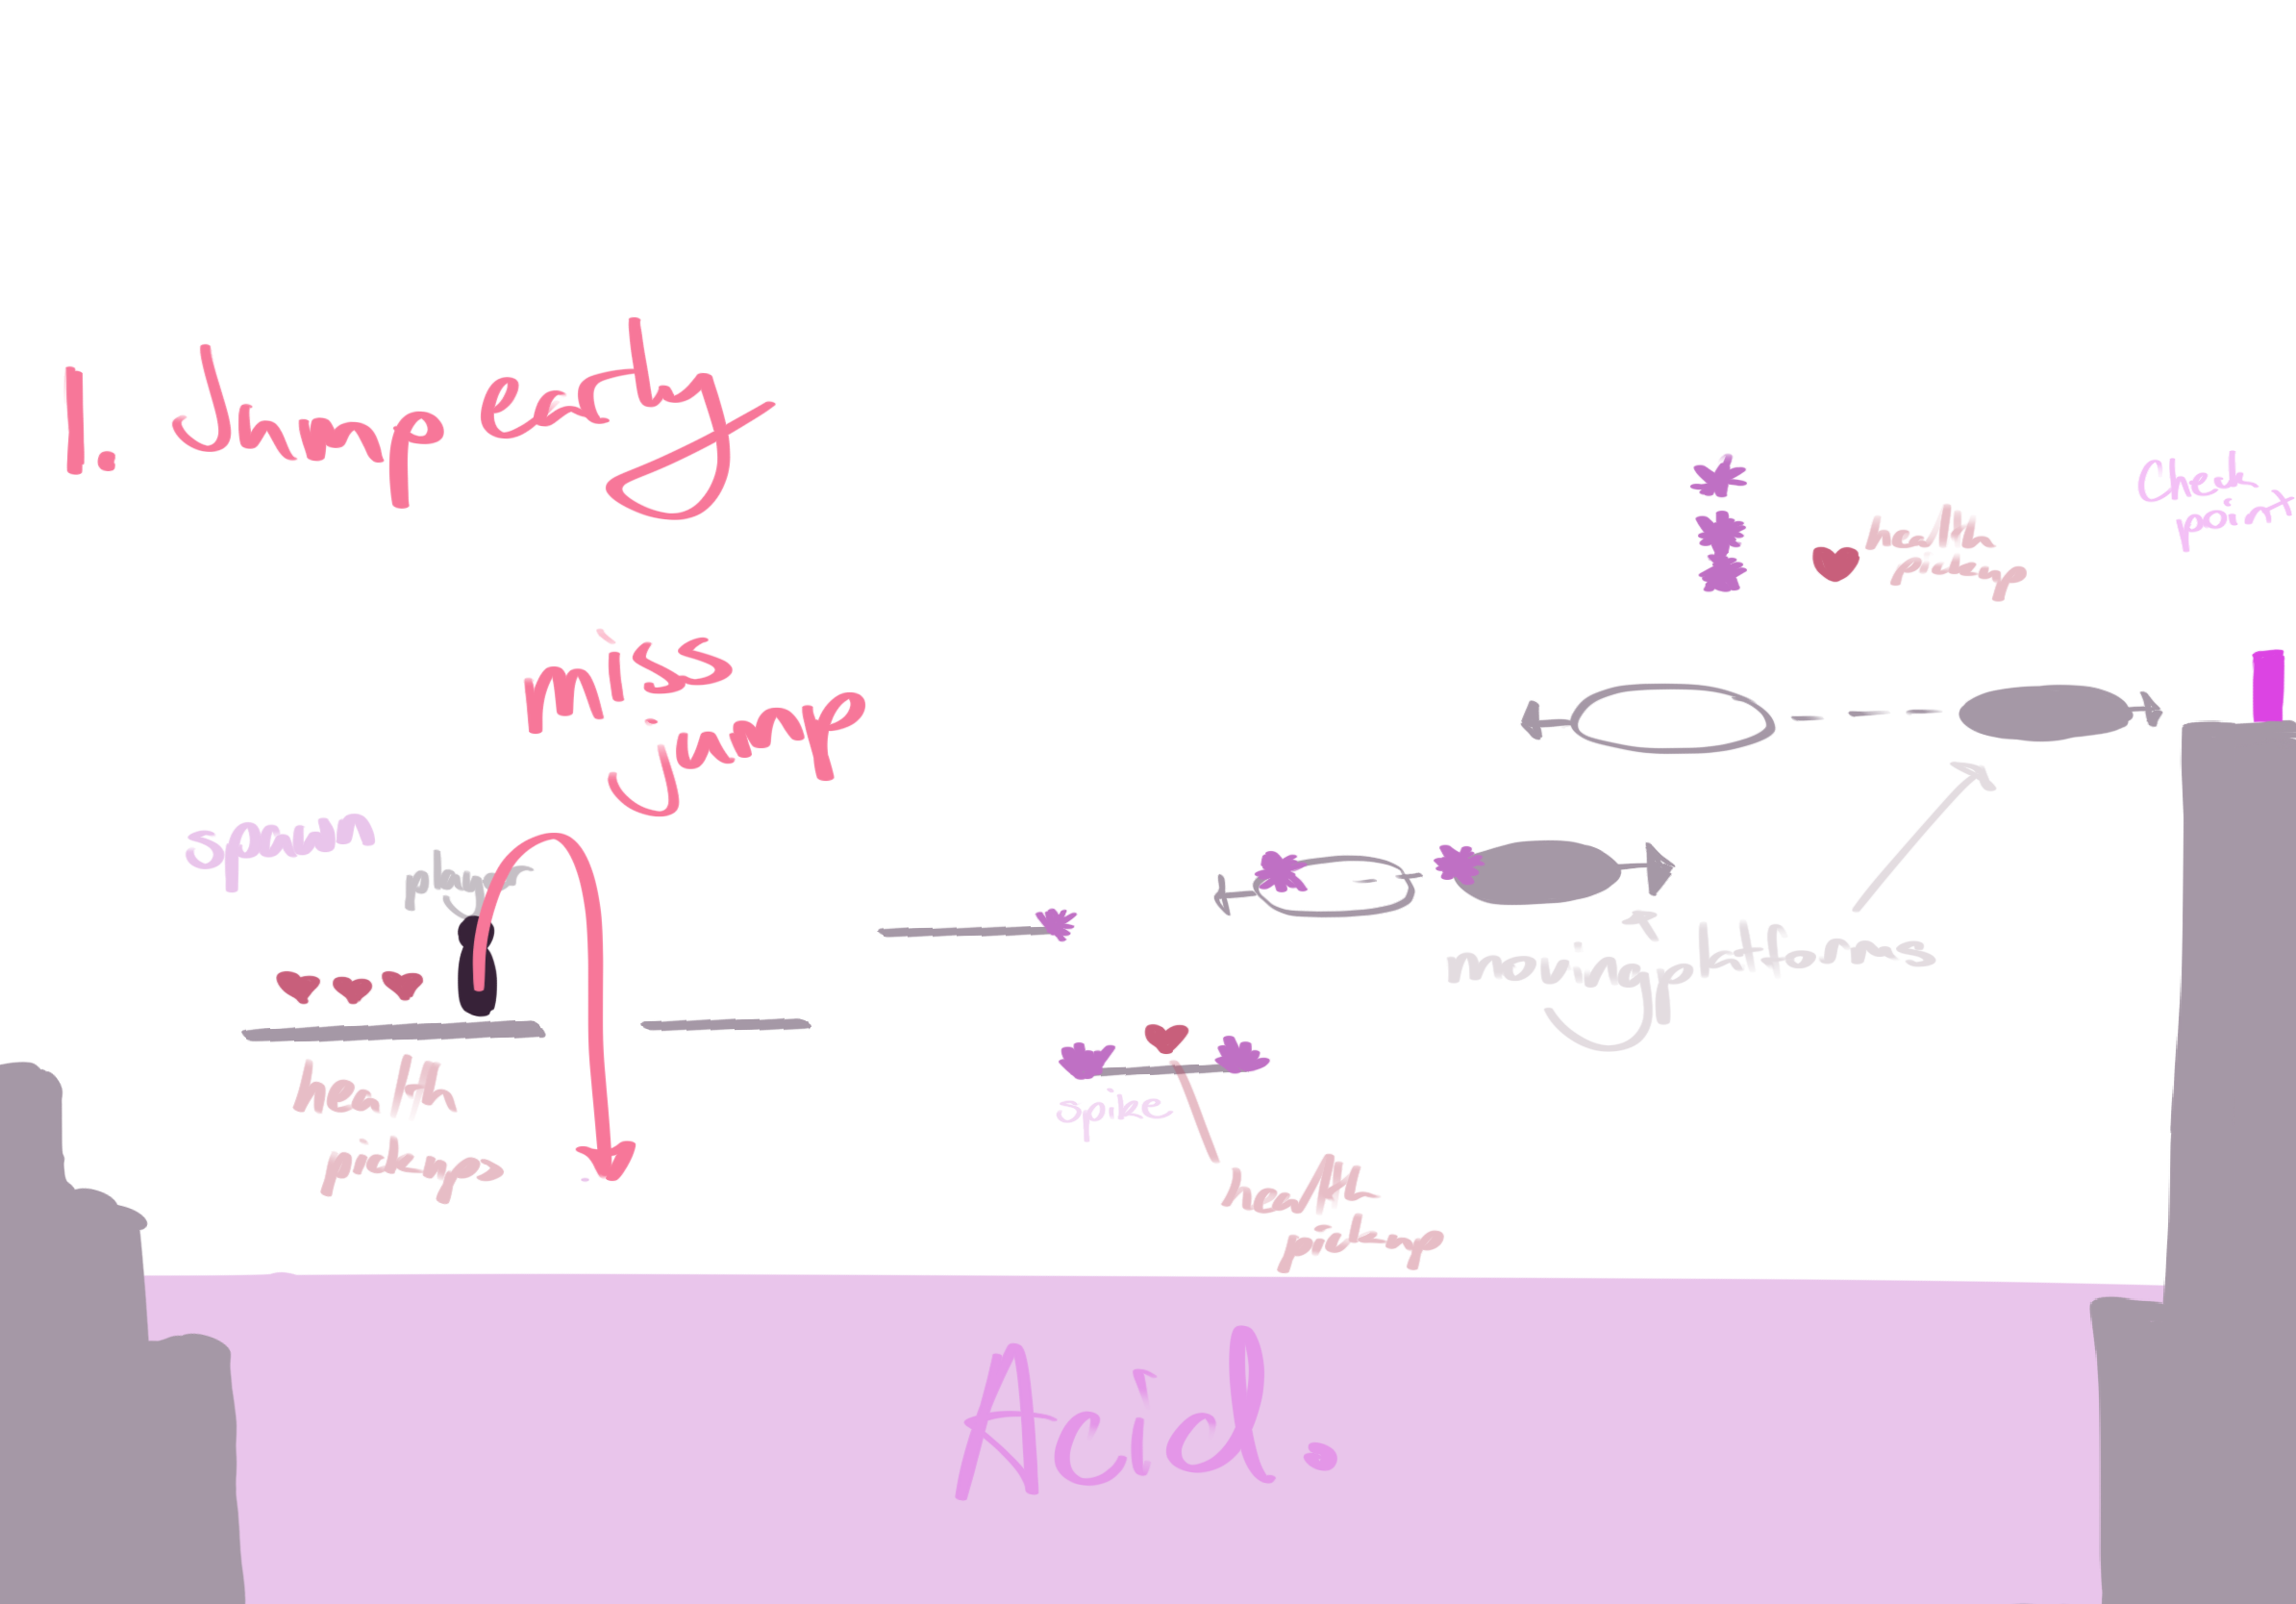 1. Jump early
Check
point
health
pickup
miss
jump
spawn
player
moving platforms
health
pick-ups
spike
health
pick-up
Acid.